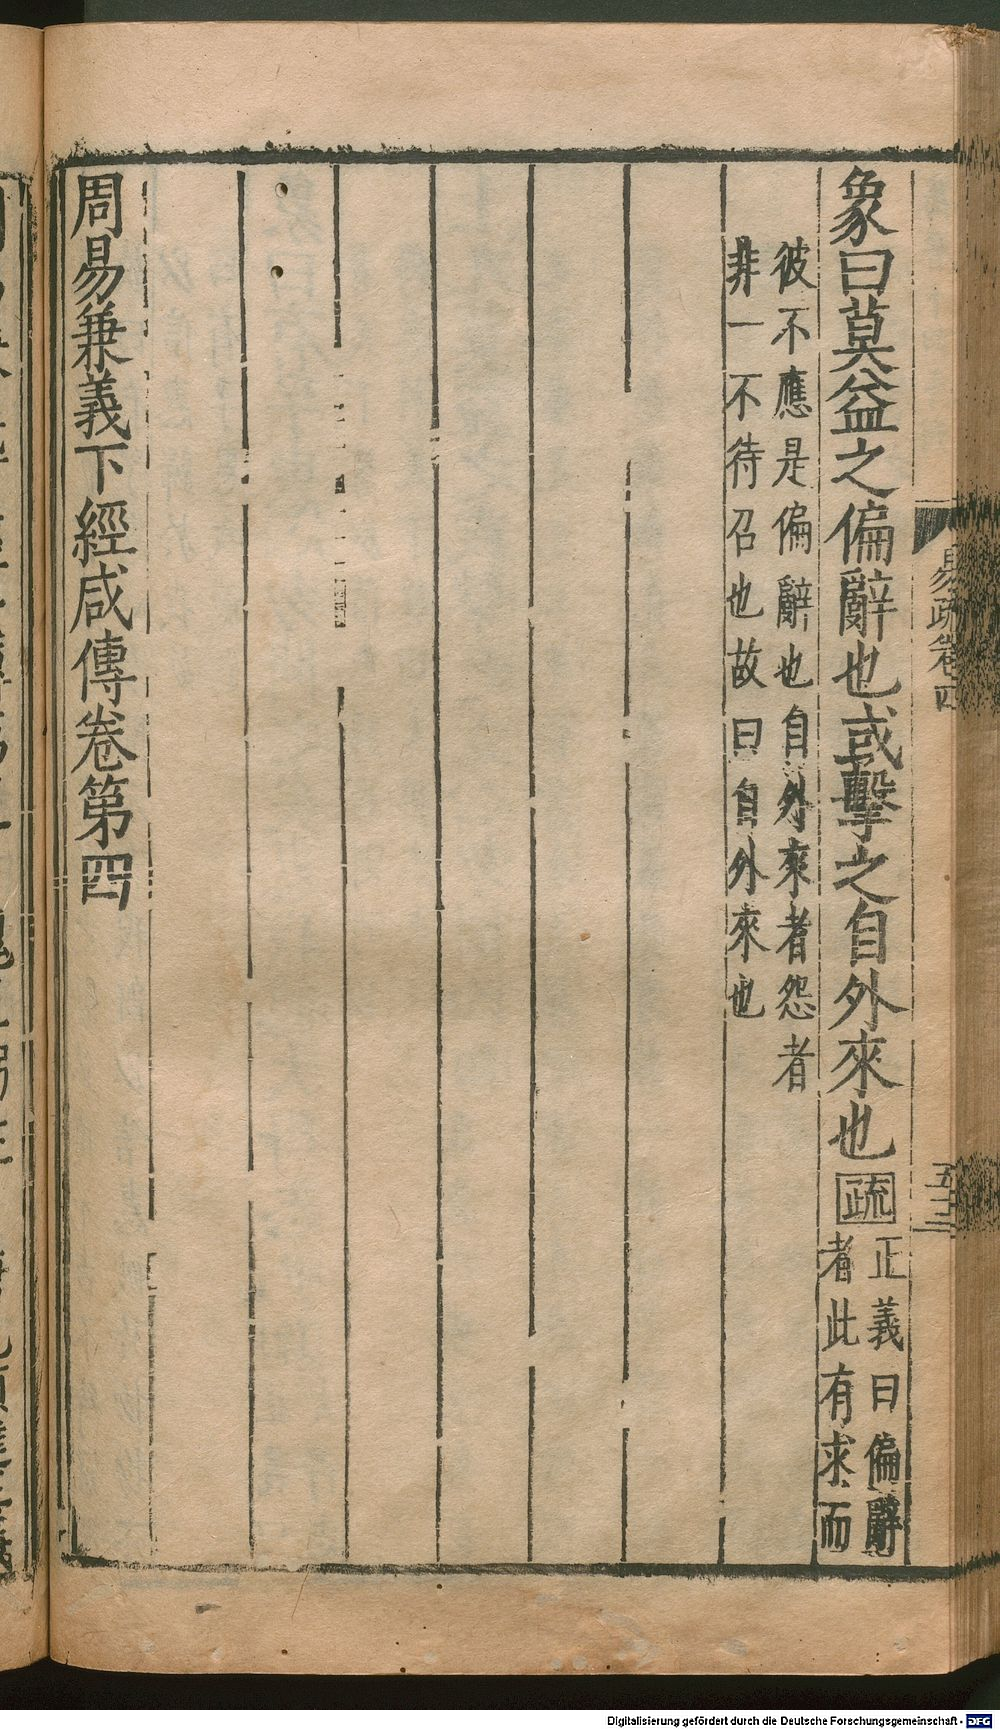 象曰莫益之偏辭也或擊之自外來也疏正義曰偏辭
者此有求而
彼不應是偏辭也自外來者怨者
非一不待召也故曰自外來也
周易兼義下經咸傳卷第四
易疏卷四
五十二
Digitalisierung gefördert durch die Deutsche Forschungsgemeinschaft - DFG